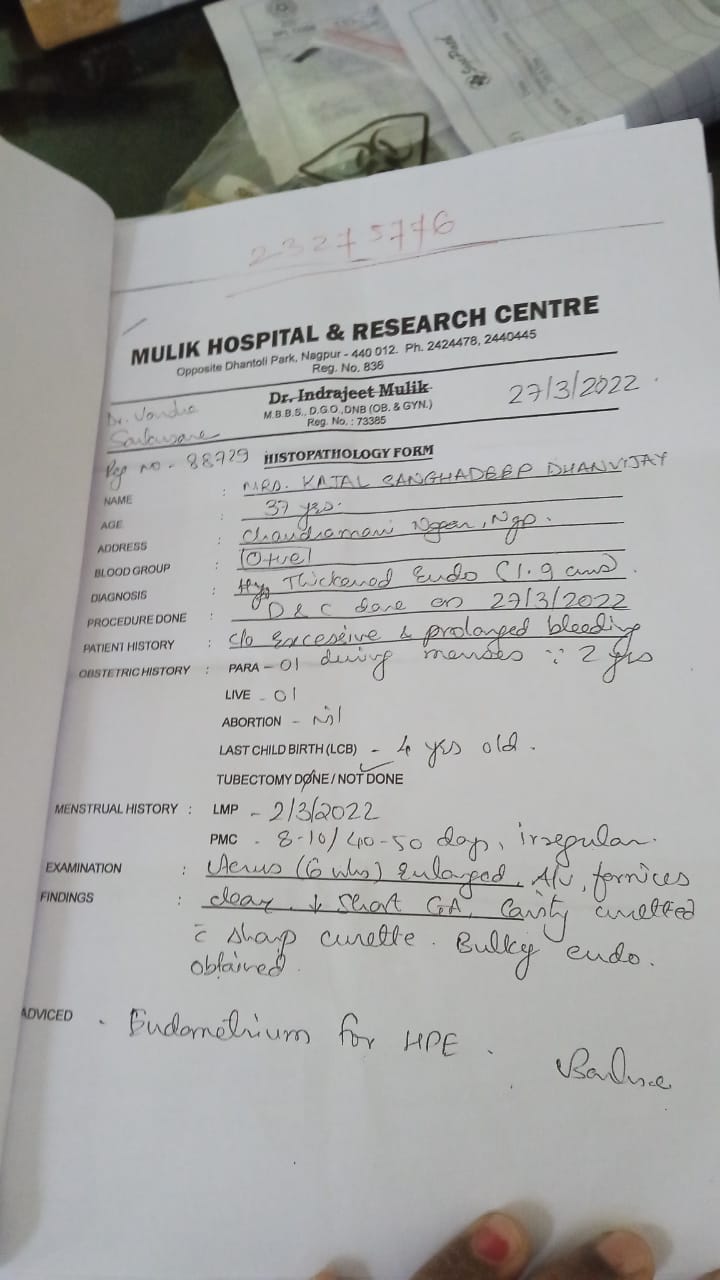 23275776
MULIK HOSPITAL & RESEARCH CENTRE
Opposite Dhantoli Park, Nagpur - 440 012. Ph. 2424478, 2440445
Reg. No. 836
Dr. Indrajeet Mulik
M.B.B.S., D.G.O.,DNB (OB. & GYN.)
Reg. No. : 73385
27/3/2022
Dr. Vandna
Reg no - 88729
HISTOPATHOLOGY FORM
NAME : MRS. KAJAL SANGHADEEP DHANVIJAY
AGE : 37 yrs.
ADDRESS : Chandramani Nagar, Ngp.
BLOOD GROUP : O+ve
DIAGNOSIS : Thickened Endo (1.9 cms).
PROCEDURE DONE : D & C done on 27/3/2022
PATIENT HISTORY : c/o Excessive & prolonged bleeding
during menses ∵ 2 yrs
OBSTETRIC HISTORY : PARA - 01
LIVE - 01
ABORTION - Nil
LAST CHILD BIRTH (LCB) - 4 yrs old.
TUBECTOMY DONE / NOT DONE
MENSTRUAL HISTORY : LMP - 2/3/2022
PMC - 8-10/40-50 days, irregular.
EXAMINATION : Uterus (6 wks) Enlarged, A/V, fornices
FINDINGS : clear. ↓ Short GA, Cavity curetted
c̄ sharp curette. Bulky endo.
obtained.
ADVICED - Endometrium for HPE.